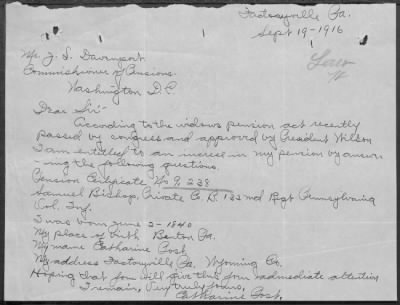 Factoryville Pa.
Sept 19-1916
Mr. J. S. Davenport
Commissioner of Pensions.
Washington D.C.
Dear Sir:-
According to the widows pension act recently
passed by congress and approved by President Wilson
I am entitled to an increse in my pension by answer
-ing the following questions.
Pension Certificate No 9. 238
Samuel Bishop, Private Co. B. 132 nd Regt Pennsylvania
Vol. Inf.
I was born June 2-1840
My place of birth Benton Pa.
My name Catharine Post
My address Factoryville Pa. Wyoming Co.
Hoping that you will give this your immediate attention
I remain, Very truly yours,
Catharine Post.